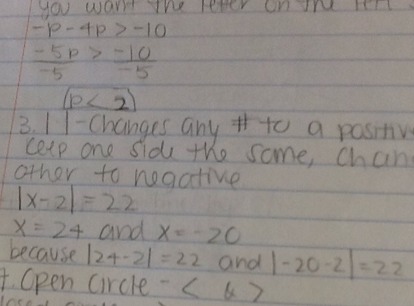 you want the letter on the left
-p-4p>-10
-5p > -10
-5 -5
p < 2
3. | | -Changes any # to a positiv
keep one side the same, chan
other to negative
|x-2|=22
x=24 and x=-20
because |24-2|=22 and |-20-2|=22
Open circle - < & >